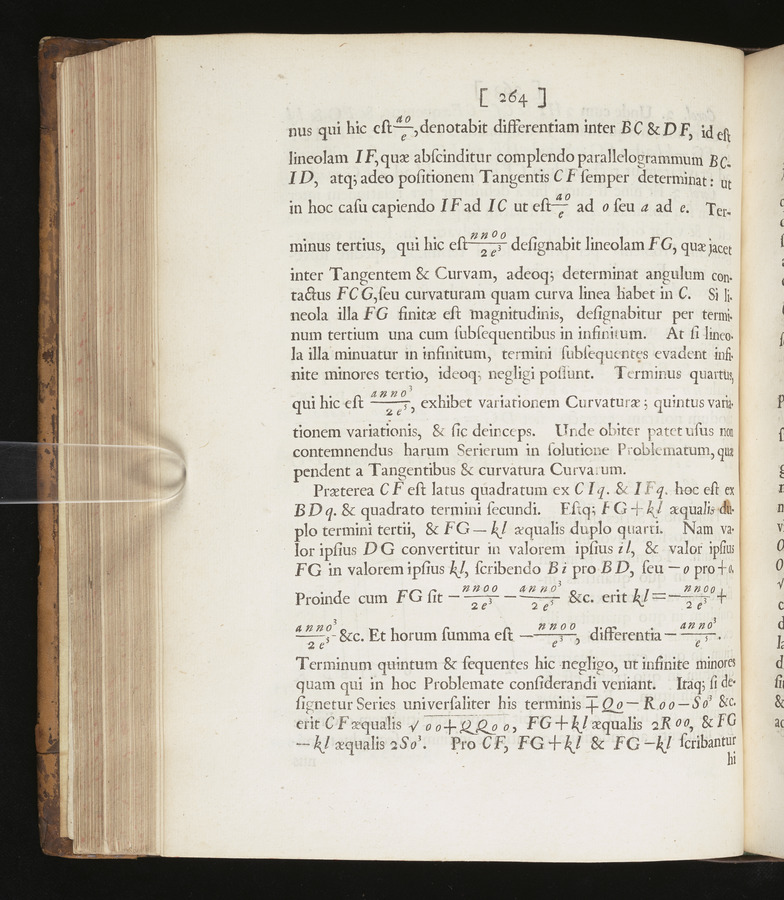 [ 264 ]
nus qui hic eſt ao/e, denotabit differentiam inter BC & DF, id eſt
lineolam IF, quæ abſcinditur complendo parallelogrammum BC-
ID, atq; adeo poſitionem Tangentis CF ſemper determinat: ut
in hoc caſu capiendo IF ad IC ut eſt ao/e ad o ſeu a ad e. Ter-
minus tertius, qui hic eſt nnoo/2e³ deſignabit lineolam FG, quæ jacet
inter Tangentem & Curvam, adeoq; determinat angulum con-
tactus FCG, ſeu curvaturam quam curva linea habet in C. Si li-
neola illa FG finitæ eſt magnitudinis, deſignabitur per termi-
num tertium una cum ſubſequentibus in infinitum. At ſi lineo-
la illa minuatur in infinitum, termini ſubſequentes evadent infi-
nite minores tertio, ideoq; negligi poſſunt. Terminus quartus,
qui hic eſt anno³/2e⁵, exhibet variationem Curvaturæ; quintus varia-
tionem variationis, & ſic deinceps. Unde obiter patet uſus non
contemnendus harum Serierum in ſolutione Problematum, quæ
pendent a Tangentibus & curvatura Curvarum.
Præterea CF eſt latus quadratum ex CIq. & IFq. hoc eſt ex
BDq. & quadrato termini ſecundi. Eſtq; FG + kl æqualis du-
plo termini tertii, & FG — kl æqualis duplo quarti. Nam va-
lor ipſius DG convertitur in valorem ipſius il, & valor ipſius
FG in valorem ipſius kl, ſcribendo Bi pro BD, ſeu — o pro + o.
Proinde cum FG ſit — nnoo/2e³ — anno³/2e⁵ &c. erit kl = — nnoo/2e³ +
anno³/2e⁵ &c. Et horum ſumma eſt — nnoo/e³, differentia — anno³/e⁵.
Terminum quintum & ſequentes hic negligo, ut infinite minores
quam qui in hoc Problemate conſiderandi veniant. Itaq; ſi de-
ſignetur Series univerſaliter his terminis ∓ Qo — Roo — So³ &c.
erit CF æqualis √ oo + QQoo, FG + kl æqualis 2Roo, & FG
— kl æqualis 2So³. Pro CF, FG + kl & FG — kl ſcribantur
hi